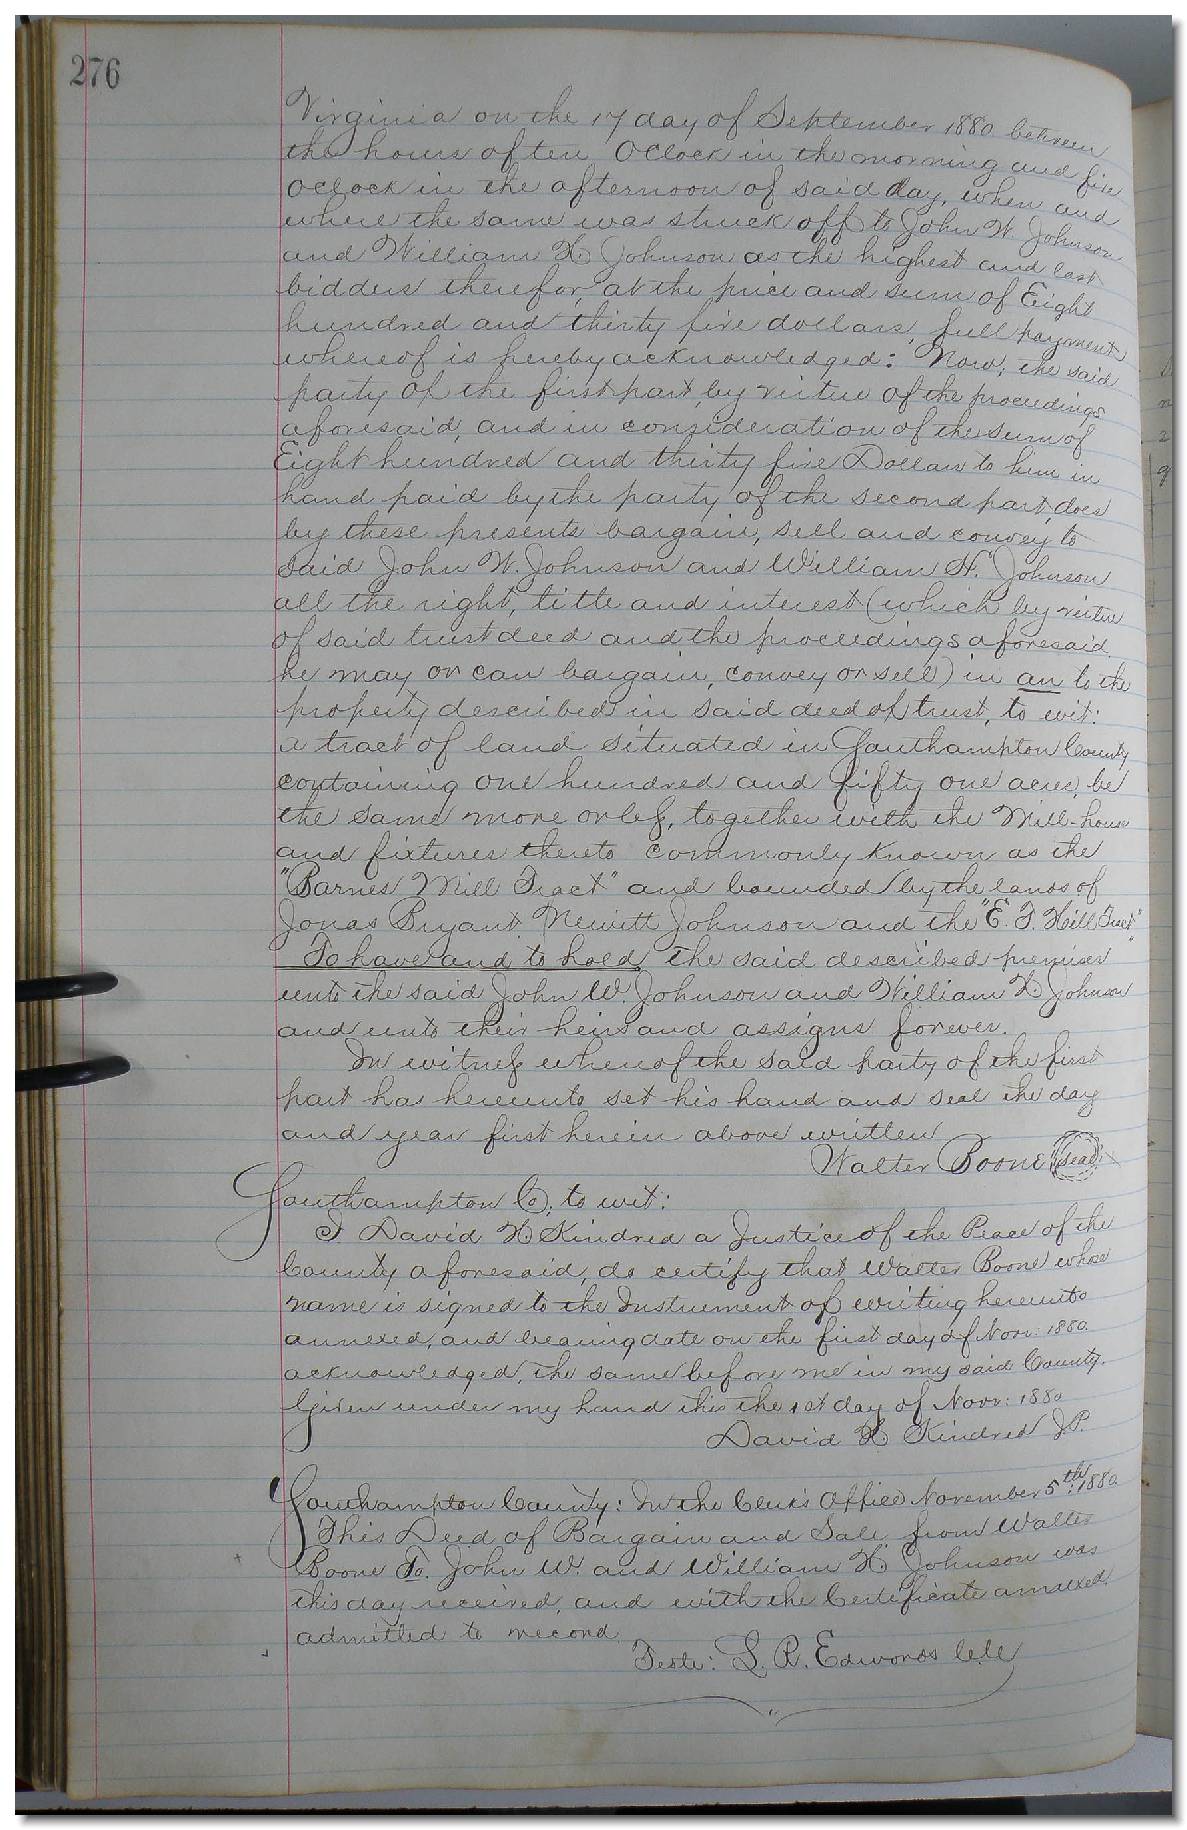 276
Virginia on the 17 day of September 1880 between
the hours of ten OClock in the morning and five
OClock in the afternoon of said day, when and
where the same was struck off to John W. Johnson
and William H. Johnson as the highest and last
bidders therefor, at the price and sum of Eight
hundred and thirty five dollars, full payment
whereof is hereby acknowledged: Now, the said
party of the first part, by virtue of the proceedings
aforesaid, and in consideration of the sum of
Eight hundred and thirty five Dollars to him in
hand paid by the party of the second part, does
by these presents bargain, sell and convey to
said John W. Johnson and William H. Johnson
all the right, title and interest (which by virtue
of said trust deed and the proceedings aforesaid
he may or can bargain, convey or sell) in an to the
property described in said deed of trust, to wit:
a tract of land situated in Southampton County
containing one hundred and fifty one acres, be
the same more or less, together with the Mill-house
and fixtures thereto commonly known as the
"Barnes Mill Tract" and bounded by the lands of
Jonas Bryant, Newitt Johnson and the "E. T. Hill Tract"
To have and to hold the said described premises
unto the said John W. Johnson and William H. Johnson
and unto their heirs and assigns forever.
In witness whereof the said party of the first
part has hereunto set his hand and seal the day
and year first herein above written
Walter Boone (seal)
Southampton Co; to wit:
I, David H Kindred a Justice of the Peace of the
County aforesaid, do certify that Walter Boone whose
name is signed to the Instrument of writing hereunto
annexed, and bearing date on the first day of Novr: 1880
acknowledged, the same before me in my said County.
Given under my hand this the 1st day of Novr: 1880
David H Kindred J.P.
Southampton County: In the Clerk's Office November 5th: 1880
This Deed of Bargain and Sale from Walter
Boone To. John W. and William H. Johnson was
this day received, and with the Certificate annexed
admitted to record.
Teste: L. R. Edwards Clk